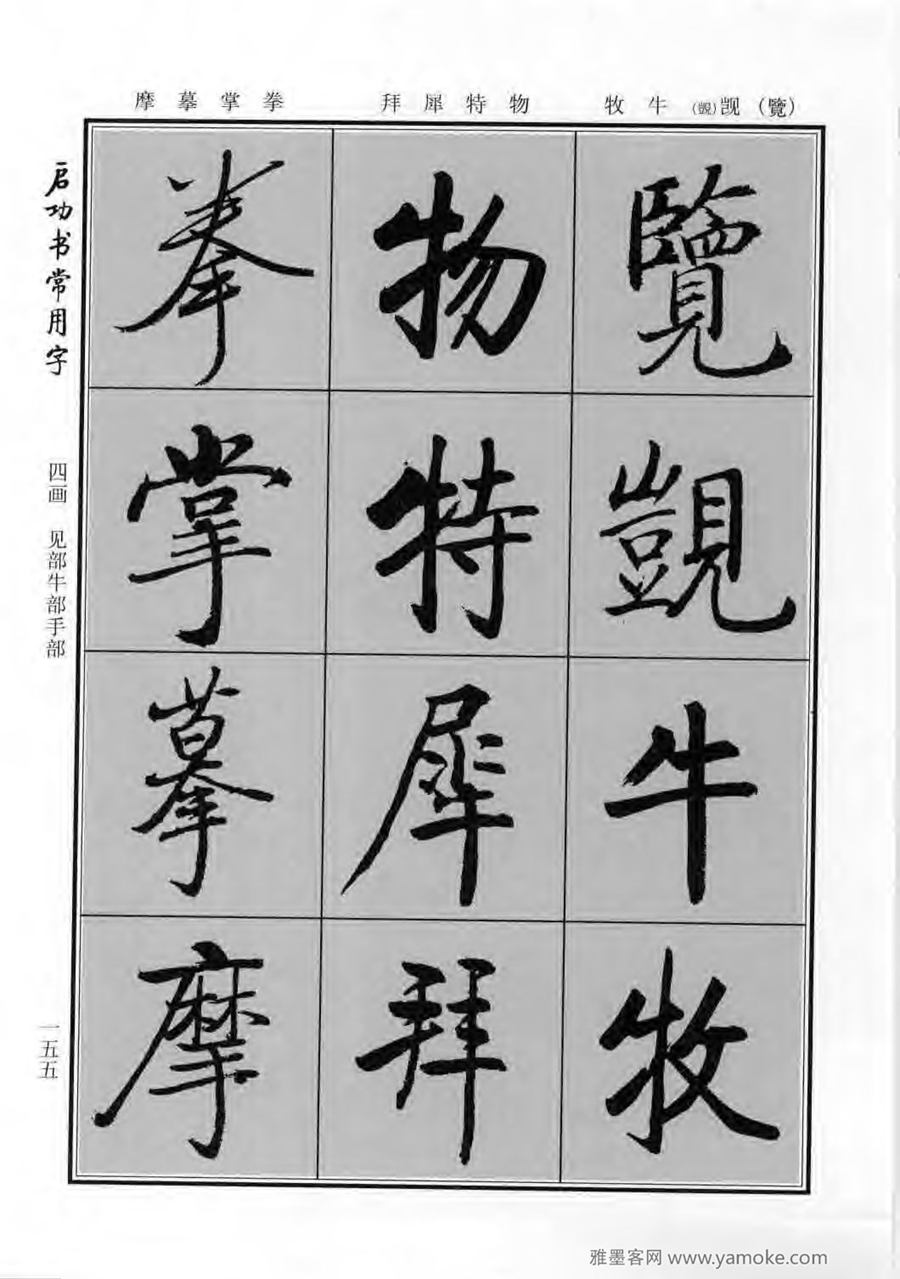 摩摹掌拳 拜犀特物 牧牛(覬)觊(覽)
覽覬牛牧
物特犀拜
拳掌摹摩
启功书常用字
四画 见部牛部手部
一五五
雅墨客网 www.yamoke.com